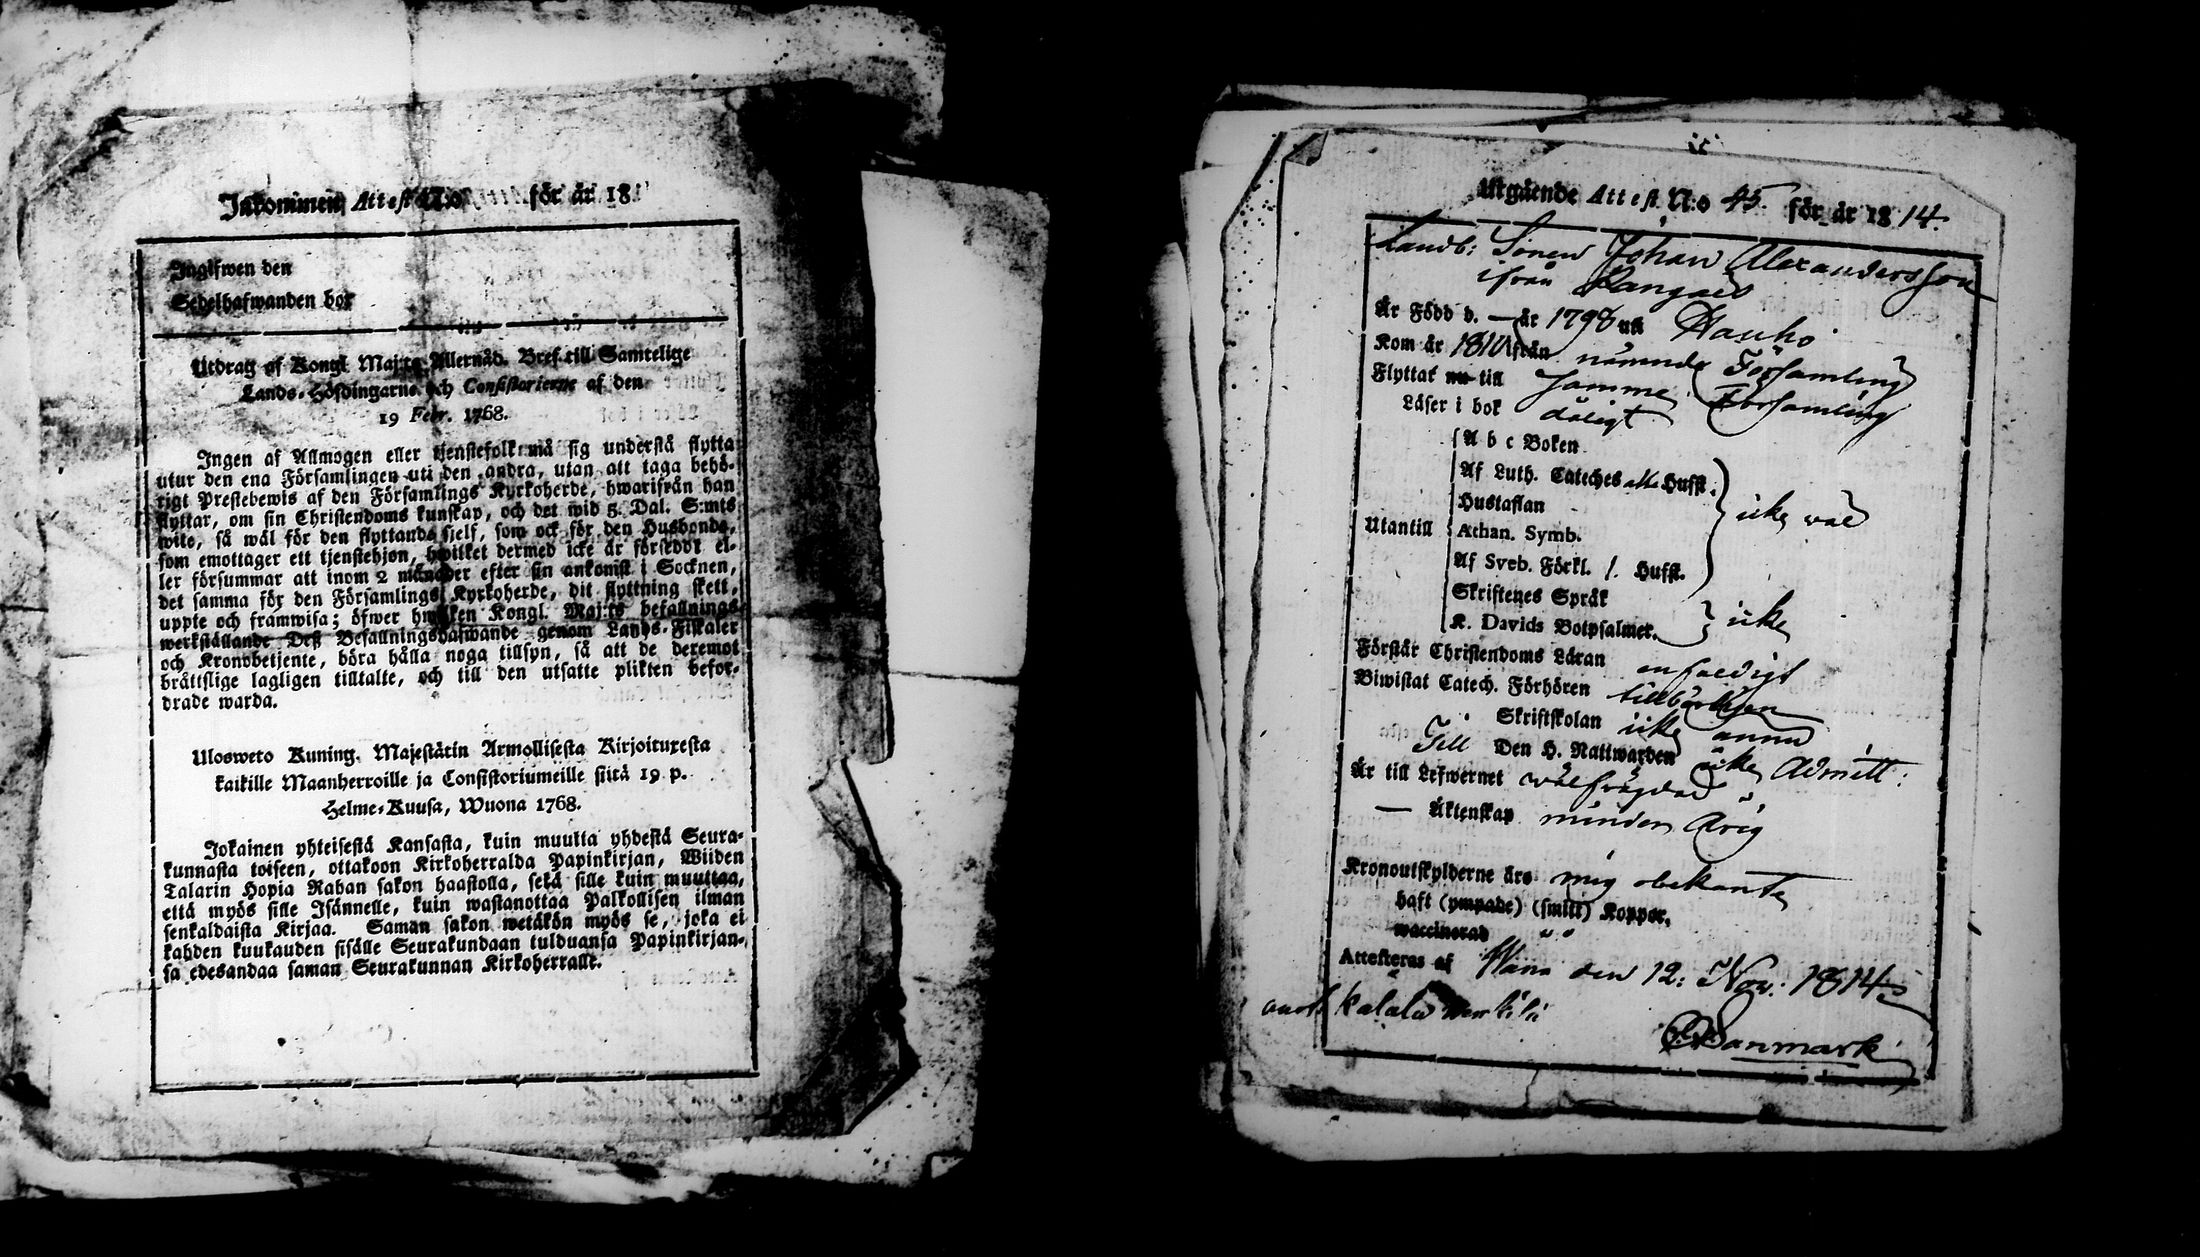 Inkommen Attest N:o för år 18
Ingifwen den
Sedelhafwanden bor
Utdrag af Kongl Maj:ts Allernåd. Bref till Samtelige
Lands-Höfdingarne och Consistorierne af den
19 Febr. 1768.
Ingen af Allmogen eller tjenstefolk må sig understå flytta
utur den ena Församlingen uti den andra, utan att taga behö-
rigt Prestebewis af den Församlings Kyrkoherde, hwarifrån han
flyttar, om sin Christendoms kunskap, och det wid 5. Dal. S:mts
wite, så wäl för den flyttande sjelf, som ock för den Husbonde,
som emottager ett tjenstehjon, hwilket dermed icke är försedt el-
ler försummar att inom 2 månader efter sin ankomst i Socknen,
det samma för den Församlings Kyrkoherde, dit flyttning skett,
uppte och framwisa; öfwer hwilken Kongl. Maj:ts befallnings
werkställande Deß Befallningshafwande genom Lands-Fiskaler
och Kronobetjente, böra hålla noga tillsyn, så att de deremot
bråttslige lagligen tilltalte, och till den utsatte plikten befor-
drade warda.
Ulosweto Kuning. Majestätin Armollisesta Kirjoituxesta
kaikille Maanherroille ja Consistoriumeille siitä 19 p.
Helme-Kuusa, Wuona 1768.
Jokainen yhteisestä Kansasta, kuin muutta yhdestä Seura-
kunnasta toiseen, ottakoon Kirkoherralda Papinkirjan, Wiiden
Talarin Hopia Rahan sakon haastolla, sekä sille kuin muuttaa,
että myös sille Isännelle, kuin wastanottaa Palkollisen ilman
senkaldaista Kirjaa. Saman sakon wetäkön myös se, joka ei
kahden kuukauden sisälle Seurakundaan tulduansa Papinkirjan-
sa edesandaa saman Seurakunnan Kirkoherralle.
Utgående Attest N:o 45. för år 18 14.
Landb: Sonen Johan Alexandersson
ifrån Kangais
Är Född d. — år 1798 uti Hauho
Kom år 1810 från nämnde Församling
Flyttat nu till samma Församling
Läser i bok dåligt
A b c Boken
Af Luth. Cateches alla Hufst.
Hustaflan
Utantill Athan. Symb. icke wäl
Af Sveb. Förkl. 1. Hufst.
Skriftenes Språk
K. Davids Botpsalmer. icke
Förstår Christendoms Läran enfaldigt
Biwistat Catech. Förhören tillbörligen
Skriftskolan icke ännu
Till Den H. Nattwarden icke Admitt.
Är till Lefwernet wälfrägdad
— Äktenskap minder Årig
Kronoutskylderne äro mig obekante
haft (ympade) (smitt) Koppor.
waccinerad " "
Attesteras af Wånå den 12: Nov: 1814
Danmark